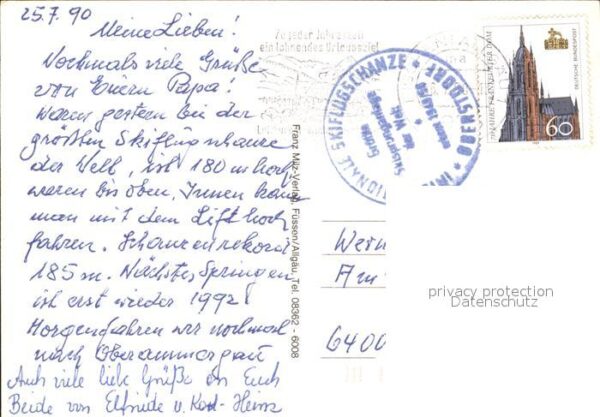 25.7.90
Meine Lieben!
Nochmals viele Grüße
von Eurem Papa!
Waren gestern bei der
größten Skiflugschanze
der Welt, ist 180 m hoch,
waren bis oben. Innen kann
man mit dem Lift hoch
fahren. Schanzenrekord
185 m. Nächstes Springen
ist erst wieder 1992!
Morgen fahren wir nochmal
nach Oberammergau
Auch viele liebe Grüße an Euch
Beide von Elfriede u. Karl-Heinz
Franz Milz-Verlag, Füssen/Allgäu, Tel. 08362 - 6008
Zu jeder Jahreszeit
ein lohnendes Urlaubsziel
SKIFLUGSCHANZE * OBERSTDORF
Größte
der Welt
erbaut 1949/50
DEUTSCHE BUNDESPOST
60
Wern
Am
6400
privacy protection
Datenschutz